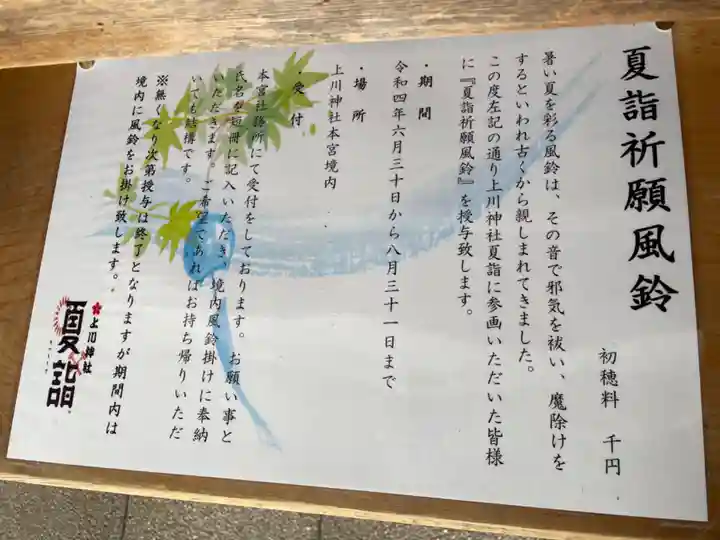 夏詣祈願風鈴
初穂料　千円
暑い夏を彩る風鈴は、その音で邪気を祓い、魔除けを
するといわれ古くから親しまれてきました。
この度左記の通り上川神社夏詣に参画いただいた皆様
に『夏詣祈願風鈴』を授与致します。
・期　間
令和四年六月三十日から八月三十一日まで
・場　所
上川神社本宮境内
・受　付
本宮社務所にて受付をしております。お願い事と
氏名を短冊に記入いただき、境内風鈴掛けに奉納
いただきます。ご希望であればお持ち帰りいただ
いても結構です。
※無くなり次第授与は終了となりますが期間内は
境内に風鈴をお掛け致します。
上川神社
夏詣